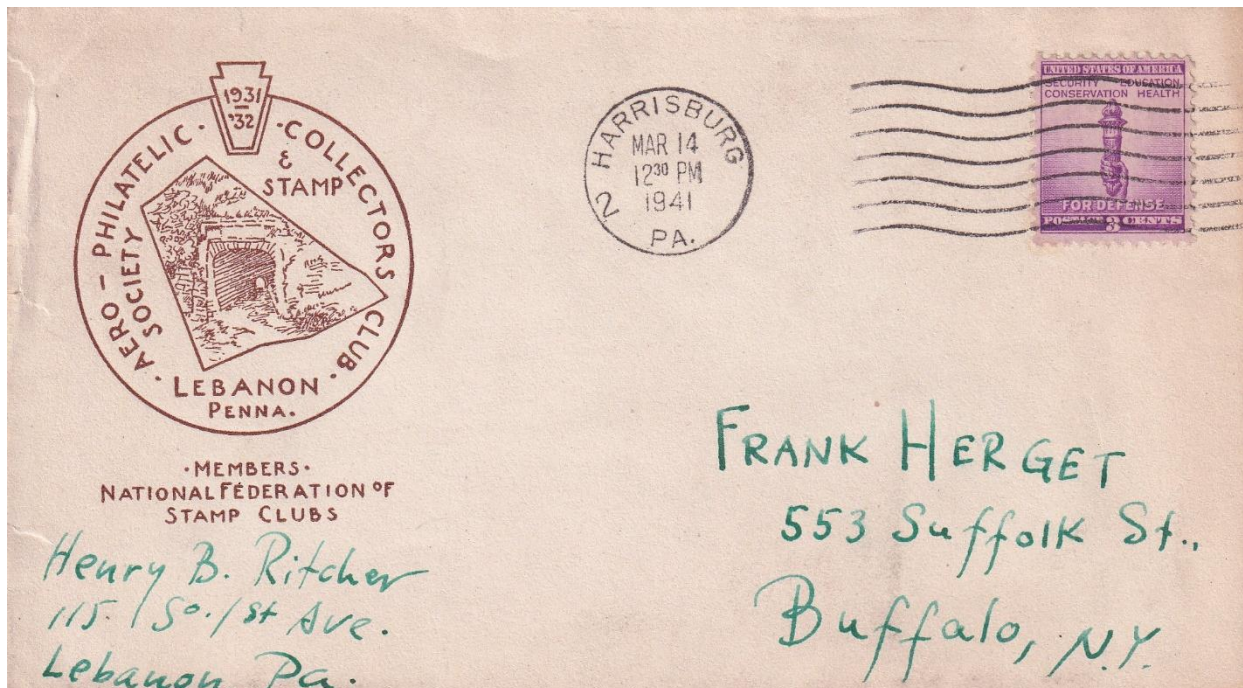 1931
'32
AERO-PHILATELIC SOCIETY
& STAMP COLLECTORS CLUB
LEBANON
PENNA.
·MEMBERS·
NATIONAL FEDERATION OF
STAMP CLUBS
Henry B. Ritcher
115 So. 1st Ave.
Lebanon Pa.
HARRISBURG
MAR 14
12 30 PM
1941
PA.
2
UNITED STATES OF AMERICA
SECURITY EDUCATION
CONSERVATION HEALTH
FOR DEFENSE
POSTAGE 3 CENTS
FRANK HERGET
553 Suffolk St.,
Buffalo, N.Y.